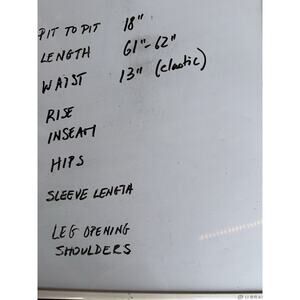 PIT TO PIT 18"
LENGTH 61"-62"
WAIST 13" (elastic)
RISE
INSEAM
HIPS
SLEEVE LENGTH
LEG OPENING
SHOULDERS